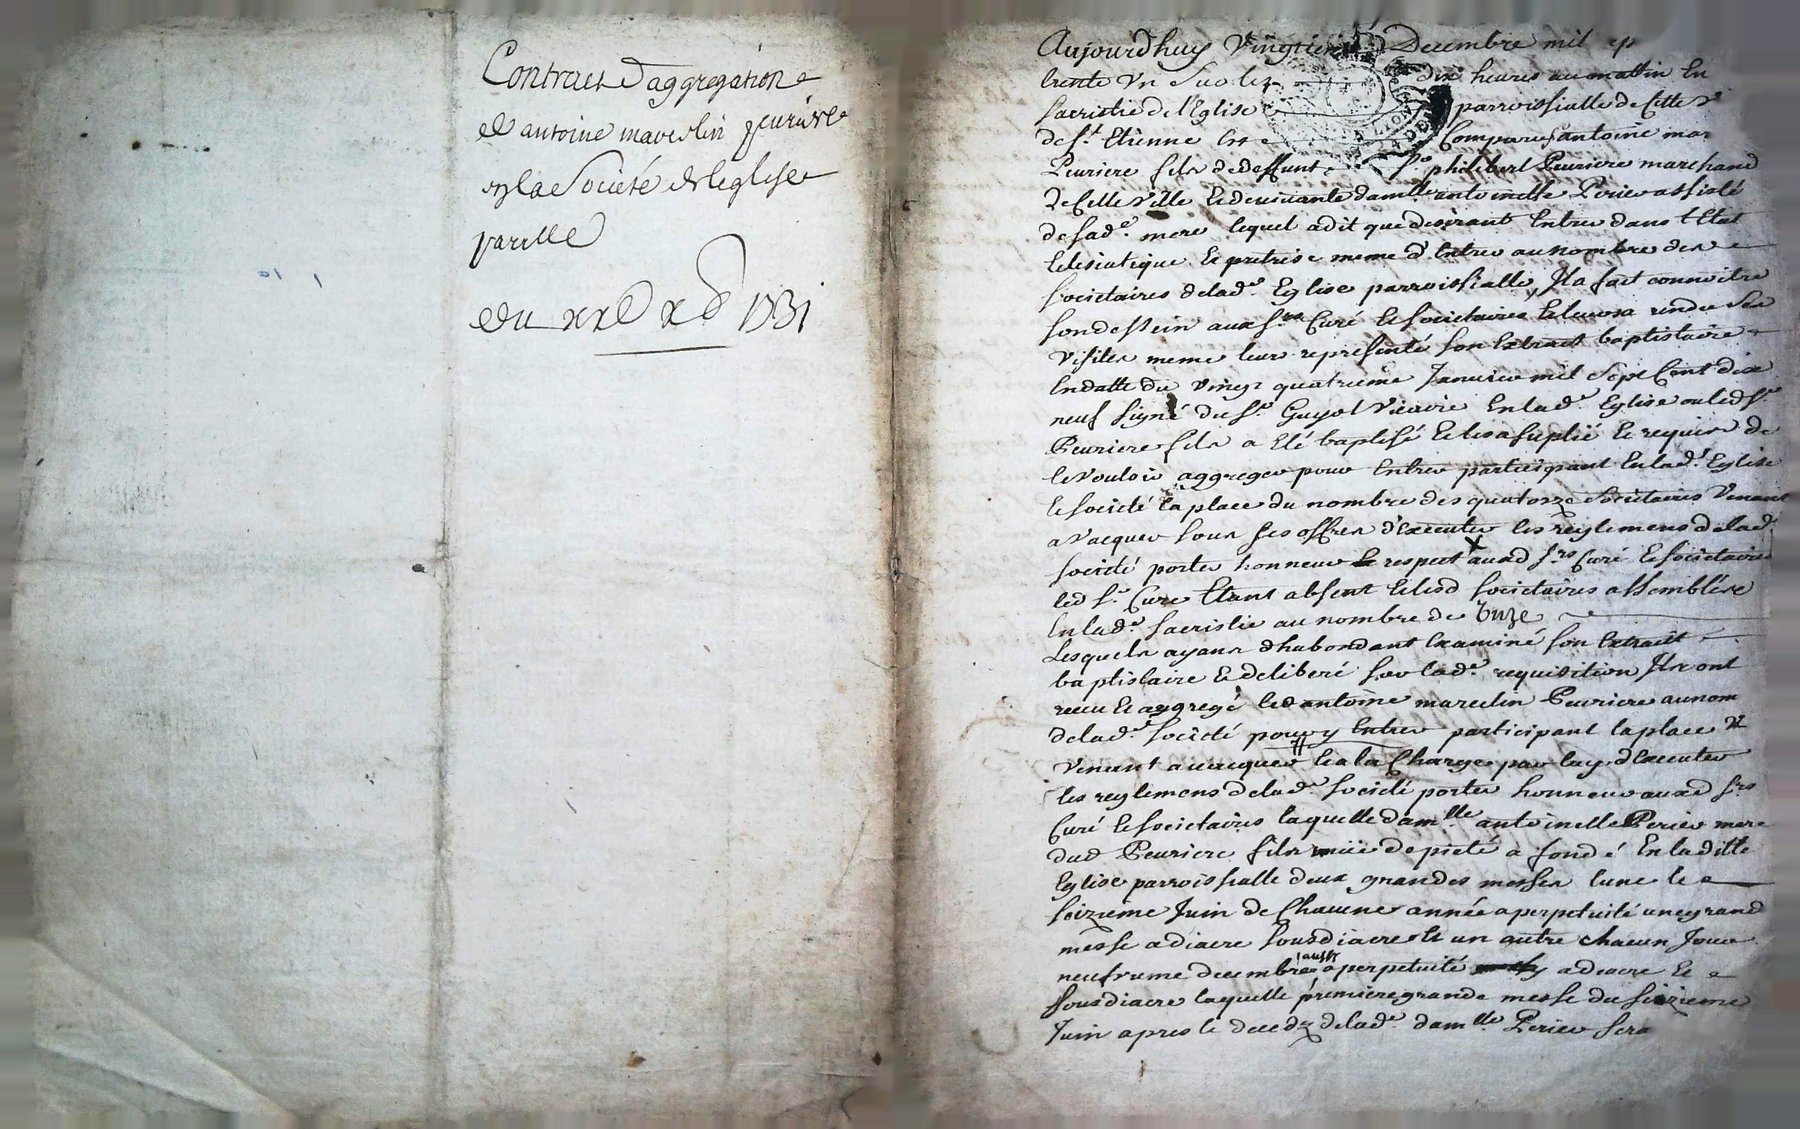 Contract d'aggregation
de antoine marcelin peurière
en la Societé de leglise
parelle
du xxe xbre 1731
Aujourdhuy Vingtieme Decembre mil sept
trente un Sur les dix heures au mattin En
Sacristie de l'Eglise parroissialle de Cette V
de St. Etienne Comparu Sr antoine mar
Peuriere fils de deffunt Sr. philibert Peuriere marchand
de Cette Ville Et de vivante damlle antoinette Perier assisté
de sade. mere lequel a dit que desirant Entrer dans l'Etat
Eclesiatique Et pretrise meme d'Entrer au nombre des
Societaires de lade. Eglise parroissialle, Il a fait connoitre
son dessein aux Srs Curé Et Societaires Et leur a rendu Ses
Visites meme leur representé son Extrait baptistaire
En datte du vingt quatrieme Janvier mil Sept Cent dix
neuf signé du Sr. Guyot Vicaire En lade. Eglise ou led Sr.
Peuriere fils a Eté baptisé Et les a suplié Et requis de
le Vouloir aggreger pour Entrer participant En lade. Eglise
Et Societé la place du nombre des quatorze Societaires Venant
a Vacquer sous ses offres d'Executer les reiglemens de lad.
societé porter honneur Et respect auxd Srs Curé Et Societaires
led Sr. Curé Etant absent Et lesd Societaires assemblés
En lade. Sacristie au nombre de Onze
Lesquels ayans d'habondant Examiné son Extrait
baptistaire Et deliberé sur lade. requisition Ils ont
receu Et aggregé led antoine marcelin Peuriere au nom
de lade. Societé pour y Entrer participant la place
Venant a vacquer Et a la Charge par luy d'Executer
les reglemens de lade. Societé porter honneur auxd Srs
Curé Et Societaires laquelle damlle antoinette Perier mere
dud Peuriere fils de pieté a fondé En laditte
Eglise parroissialle deux grandes messes lune le
Seizieme Juin de Chacune année a perpetuité une grand
messe a diacre Sousdiacre Et un autre chacun Jour
neufvieme decembre aussy a perpetuité a diacre Et
Sousdiacre laquelle premiere grande messe du Seizieme
Juin apres le decedz de lade. damlle Perier sera